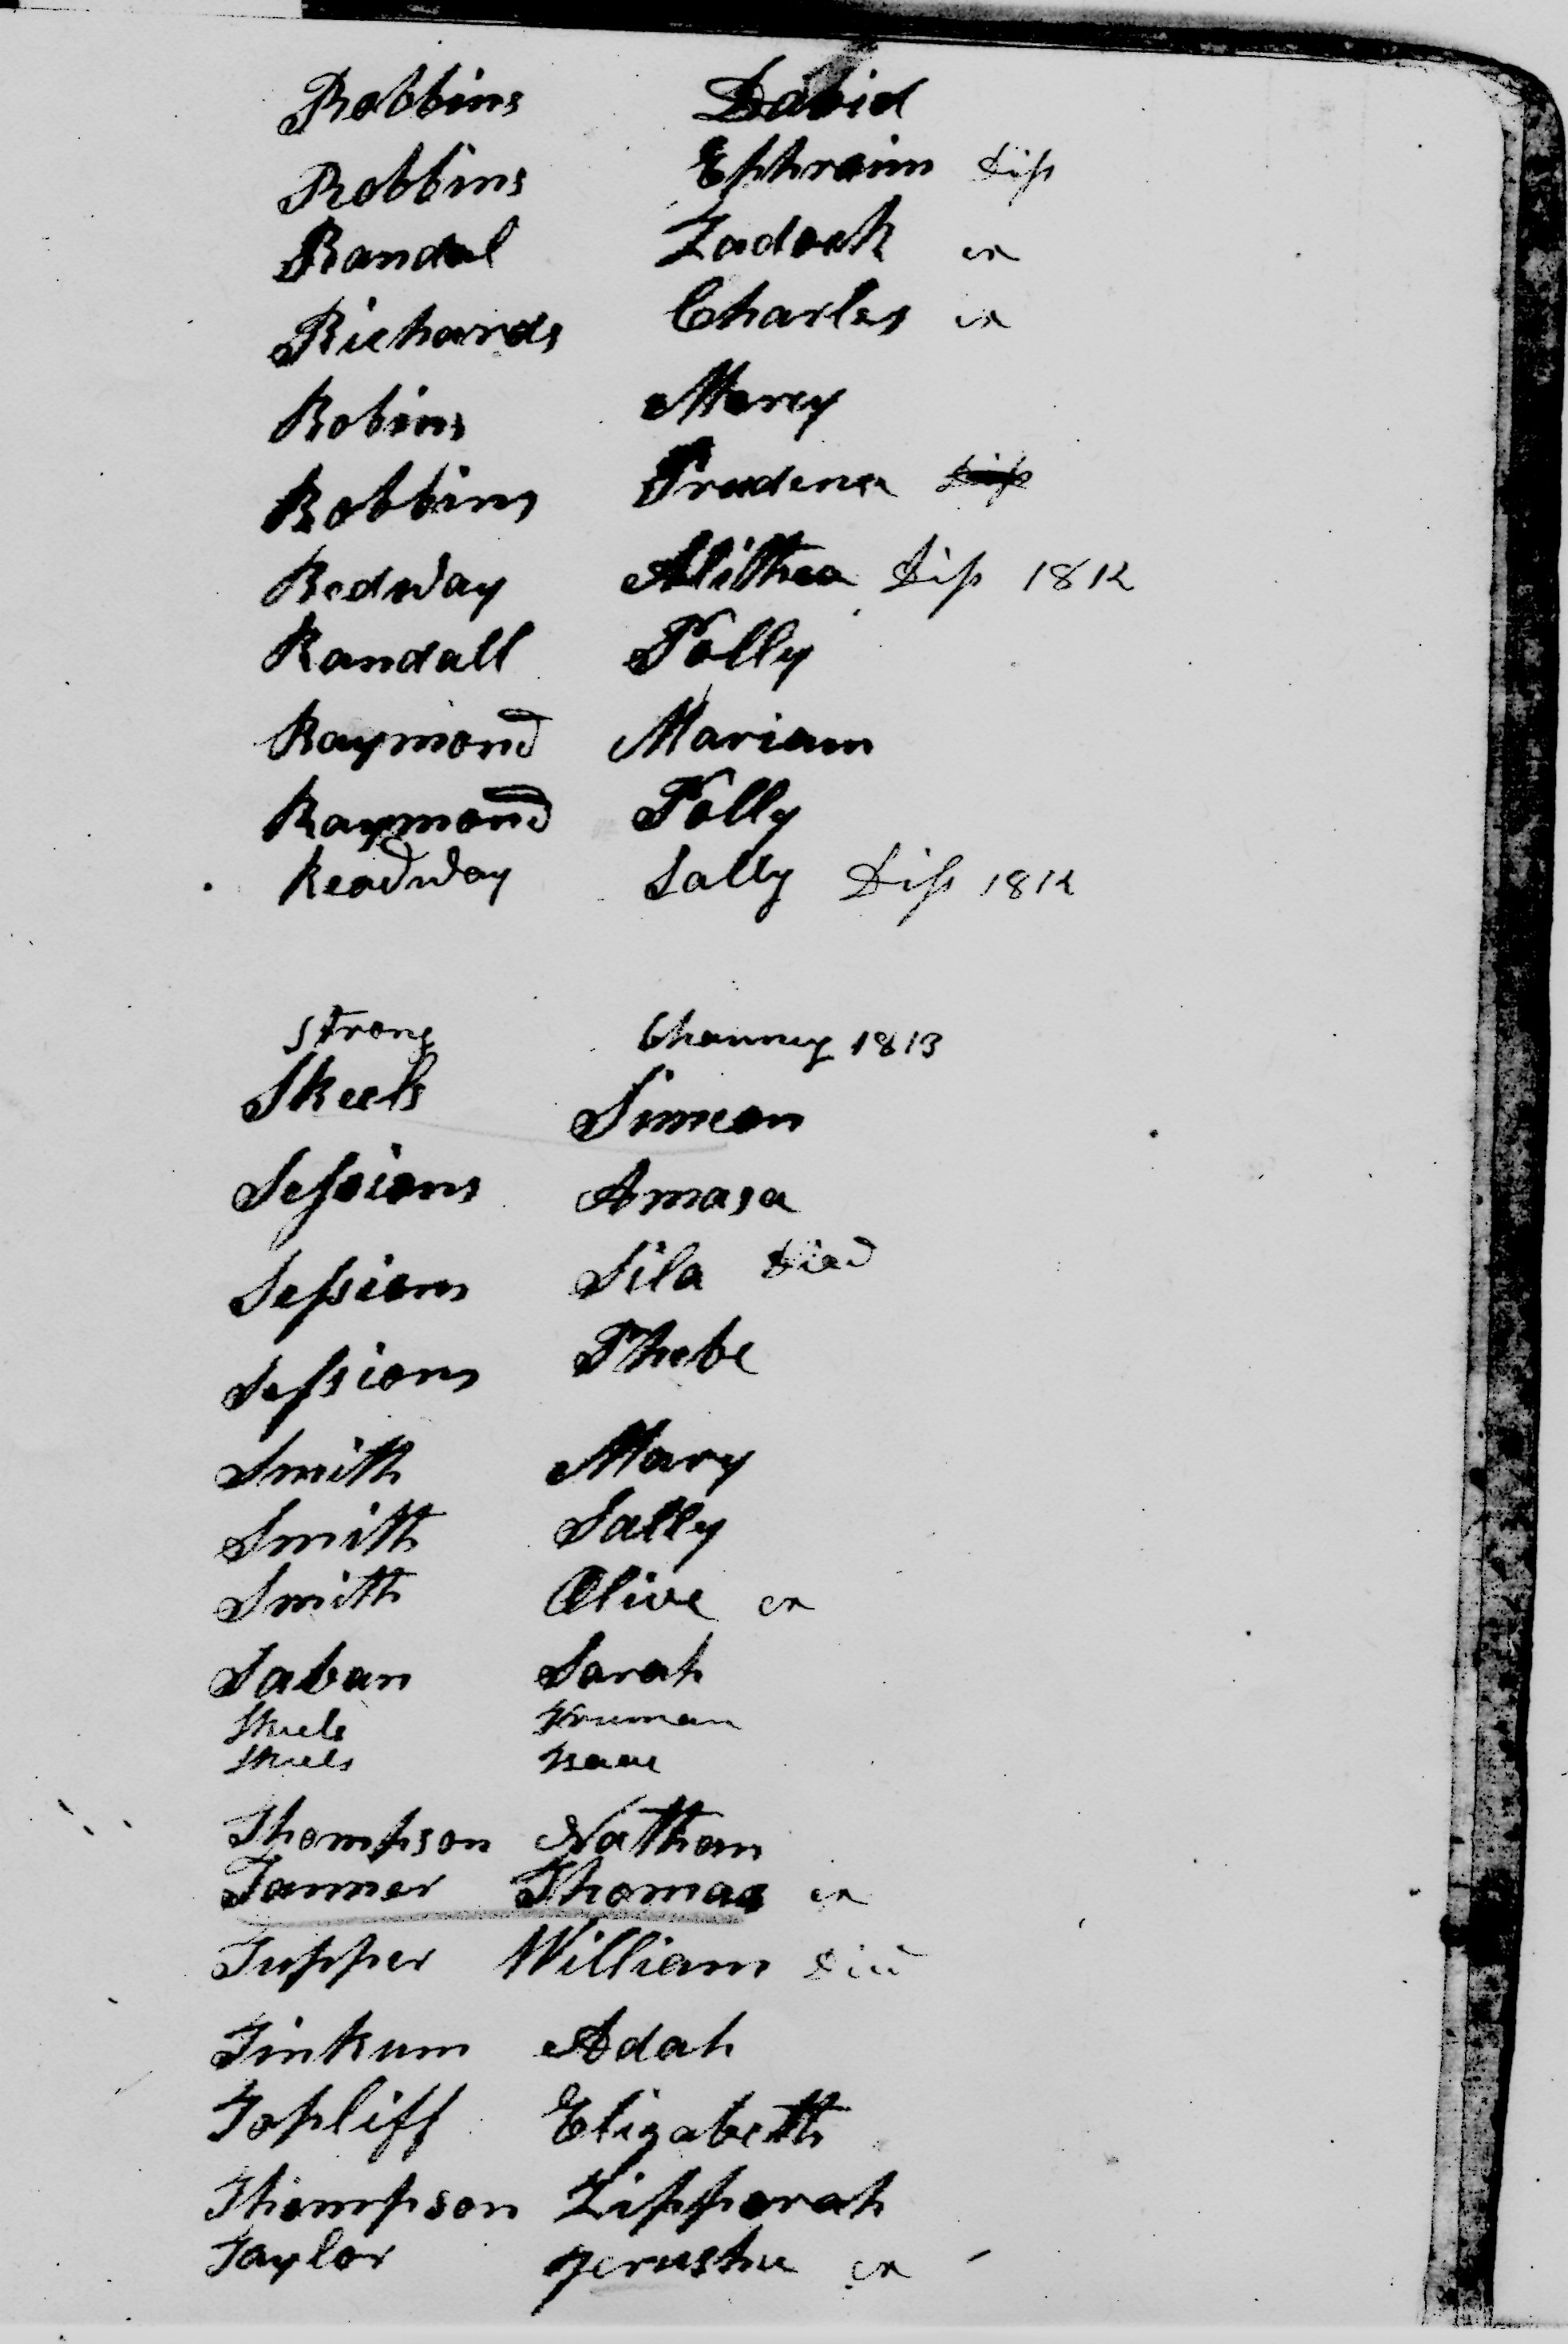 Robbins David
Robbins Ephraim Dis
Randal Zadock ex
Richards Charles ex
Robins Marcy
Robbins Prudence Dis
Redway Alithea Dis 1812
Randall Polly
Raymond Mariam
Raymond Polly
Readway Sally Dis 1812
Strong Chauncy 1813
Skeels Simeon
Sessions Amasa
Sessions Sila Died
Sessions Phebe
Smith Mary
Smith Sally
Smith Olive ex
Saban Sarah
Skeels Truman
Skeels Isaac
Thompson Nathan
Tanner Thomas ex
Tupper William Died
Tinkum Adah
Topliff Elizabeth
Thompson Zipporah
Taylor Jerusha ex